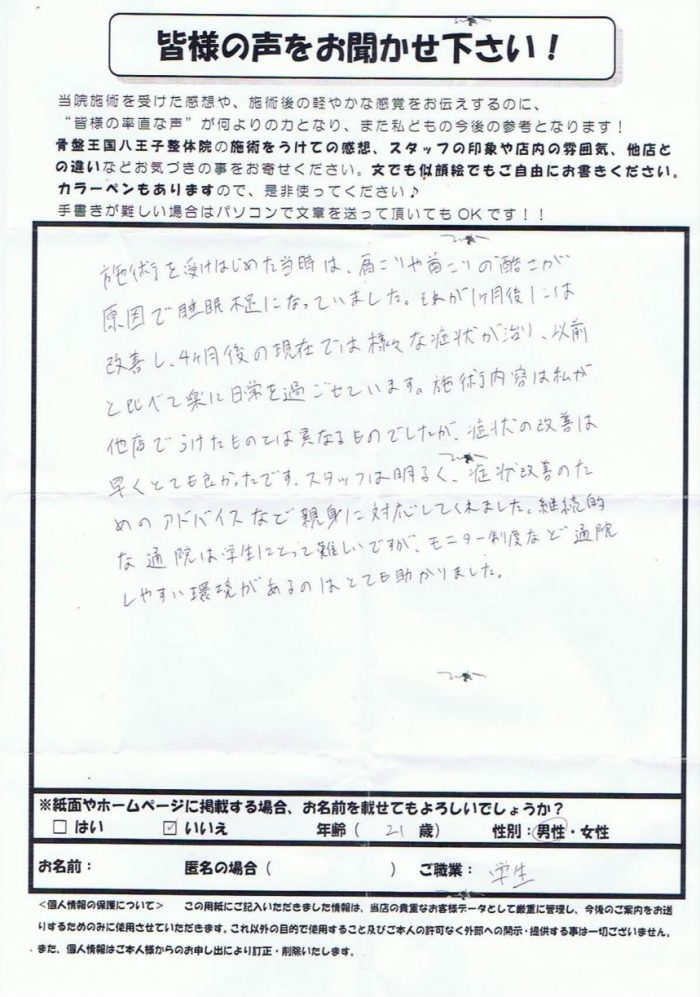 皆様の声をお聞かせ下さい！
当院施術を受けた感想や、施術後の軽やかな感覚をお伝えするのに、
“皆様の率直な声”が何よりの力となり、また私どもの今後の参考となります！
骨盤王国八王子整体院の施術をうけての感想、スタッフの印象や店内の雰囲気、他店と
の違いなどお気づきの事をお寄せください。文でも似顔絵でもご自由にお書きください。
カラーペンもありますので、是非使ってください♪
手書きが難しい場合はパソコンで文章を送って頂いてもOKです！！
施術を受けはじめた当時は、肩こりや首こりの酷さが
原因で睡眠不足になっていました。それが1ヶ月後には
改善し、4ヶ月後の現在では様々な症状が治り、以前
と比べて楽に日常を過ごせています。施術内容は私が
他店でうけたものとは異なるものでしたが、症状の改善は
早くとても良かったです。スタッフは明るく、症状改善のた
めのアドバイスなど親身に対応してくれました。継続的
な通院は学生にとって難しいですが、モニター制度など通院
しやすい環境があるのはとても助かりました。
※紙面やホームページに掲載する場合、お名前を載せてもよろしいでしょうか？
□ はい ☑ いいえ 年齢（ 21 歳） 性別：男性・女性
お名前： 匿名の場合（ ） ご職業： 学生
＜個人情報の保護について＞ この用紙にご記入いただきました情報は、当店の貴重なお客様データとして厳重に管理し、今後のご案内をお送
りするためのみに使用させていただきます。これ以外の目的で使用すること及びご本人の許可なく外部への開示・提供する事は一切ございません。
また、個人情報はご本人様からのお申し出により訂正・削除いたします。